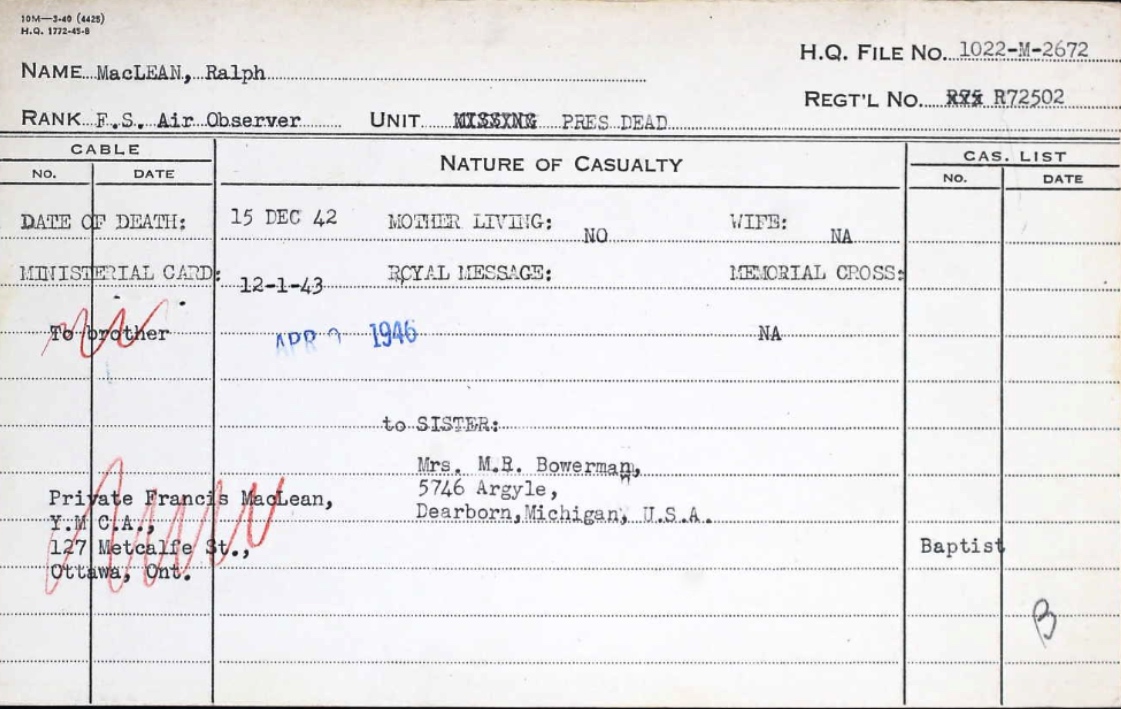 10M—3-40 (4425)
H.Q. 1772-45-8
H.Q. FILE No. 1022-M-2672
NAME MacLEAN, Ralph
REGT'L No. R72502
RANK F.S. Air Observer UNIT MISSING PRES DEAD
CABLE NATURE OF CASUALTY CAS. LIST
NO. DATE NO. DATE
DATE OF DEATH: 15 DEC 42 MOTHER LIVING: NO WIFE: NA
MINISTERIAL CARD: 12-1-43 ROYAL MESSAGE: MEMORIAL CROSS:
To brother APR 1946 NA
to SISTER:
Mrs. M.R. Bowerman,
5746 Argyle,
Dearborn, Michigan, U.S.A.
Private Francis MacLean,
Y.M C.A.,
127 Metcalfe St.,
Ottawa, Ont.
Baptist
B